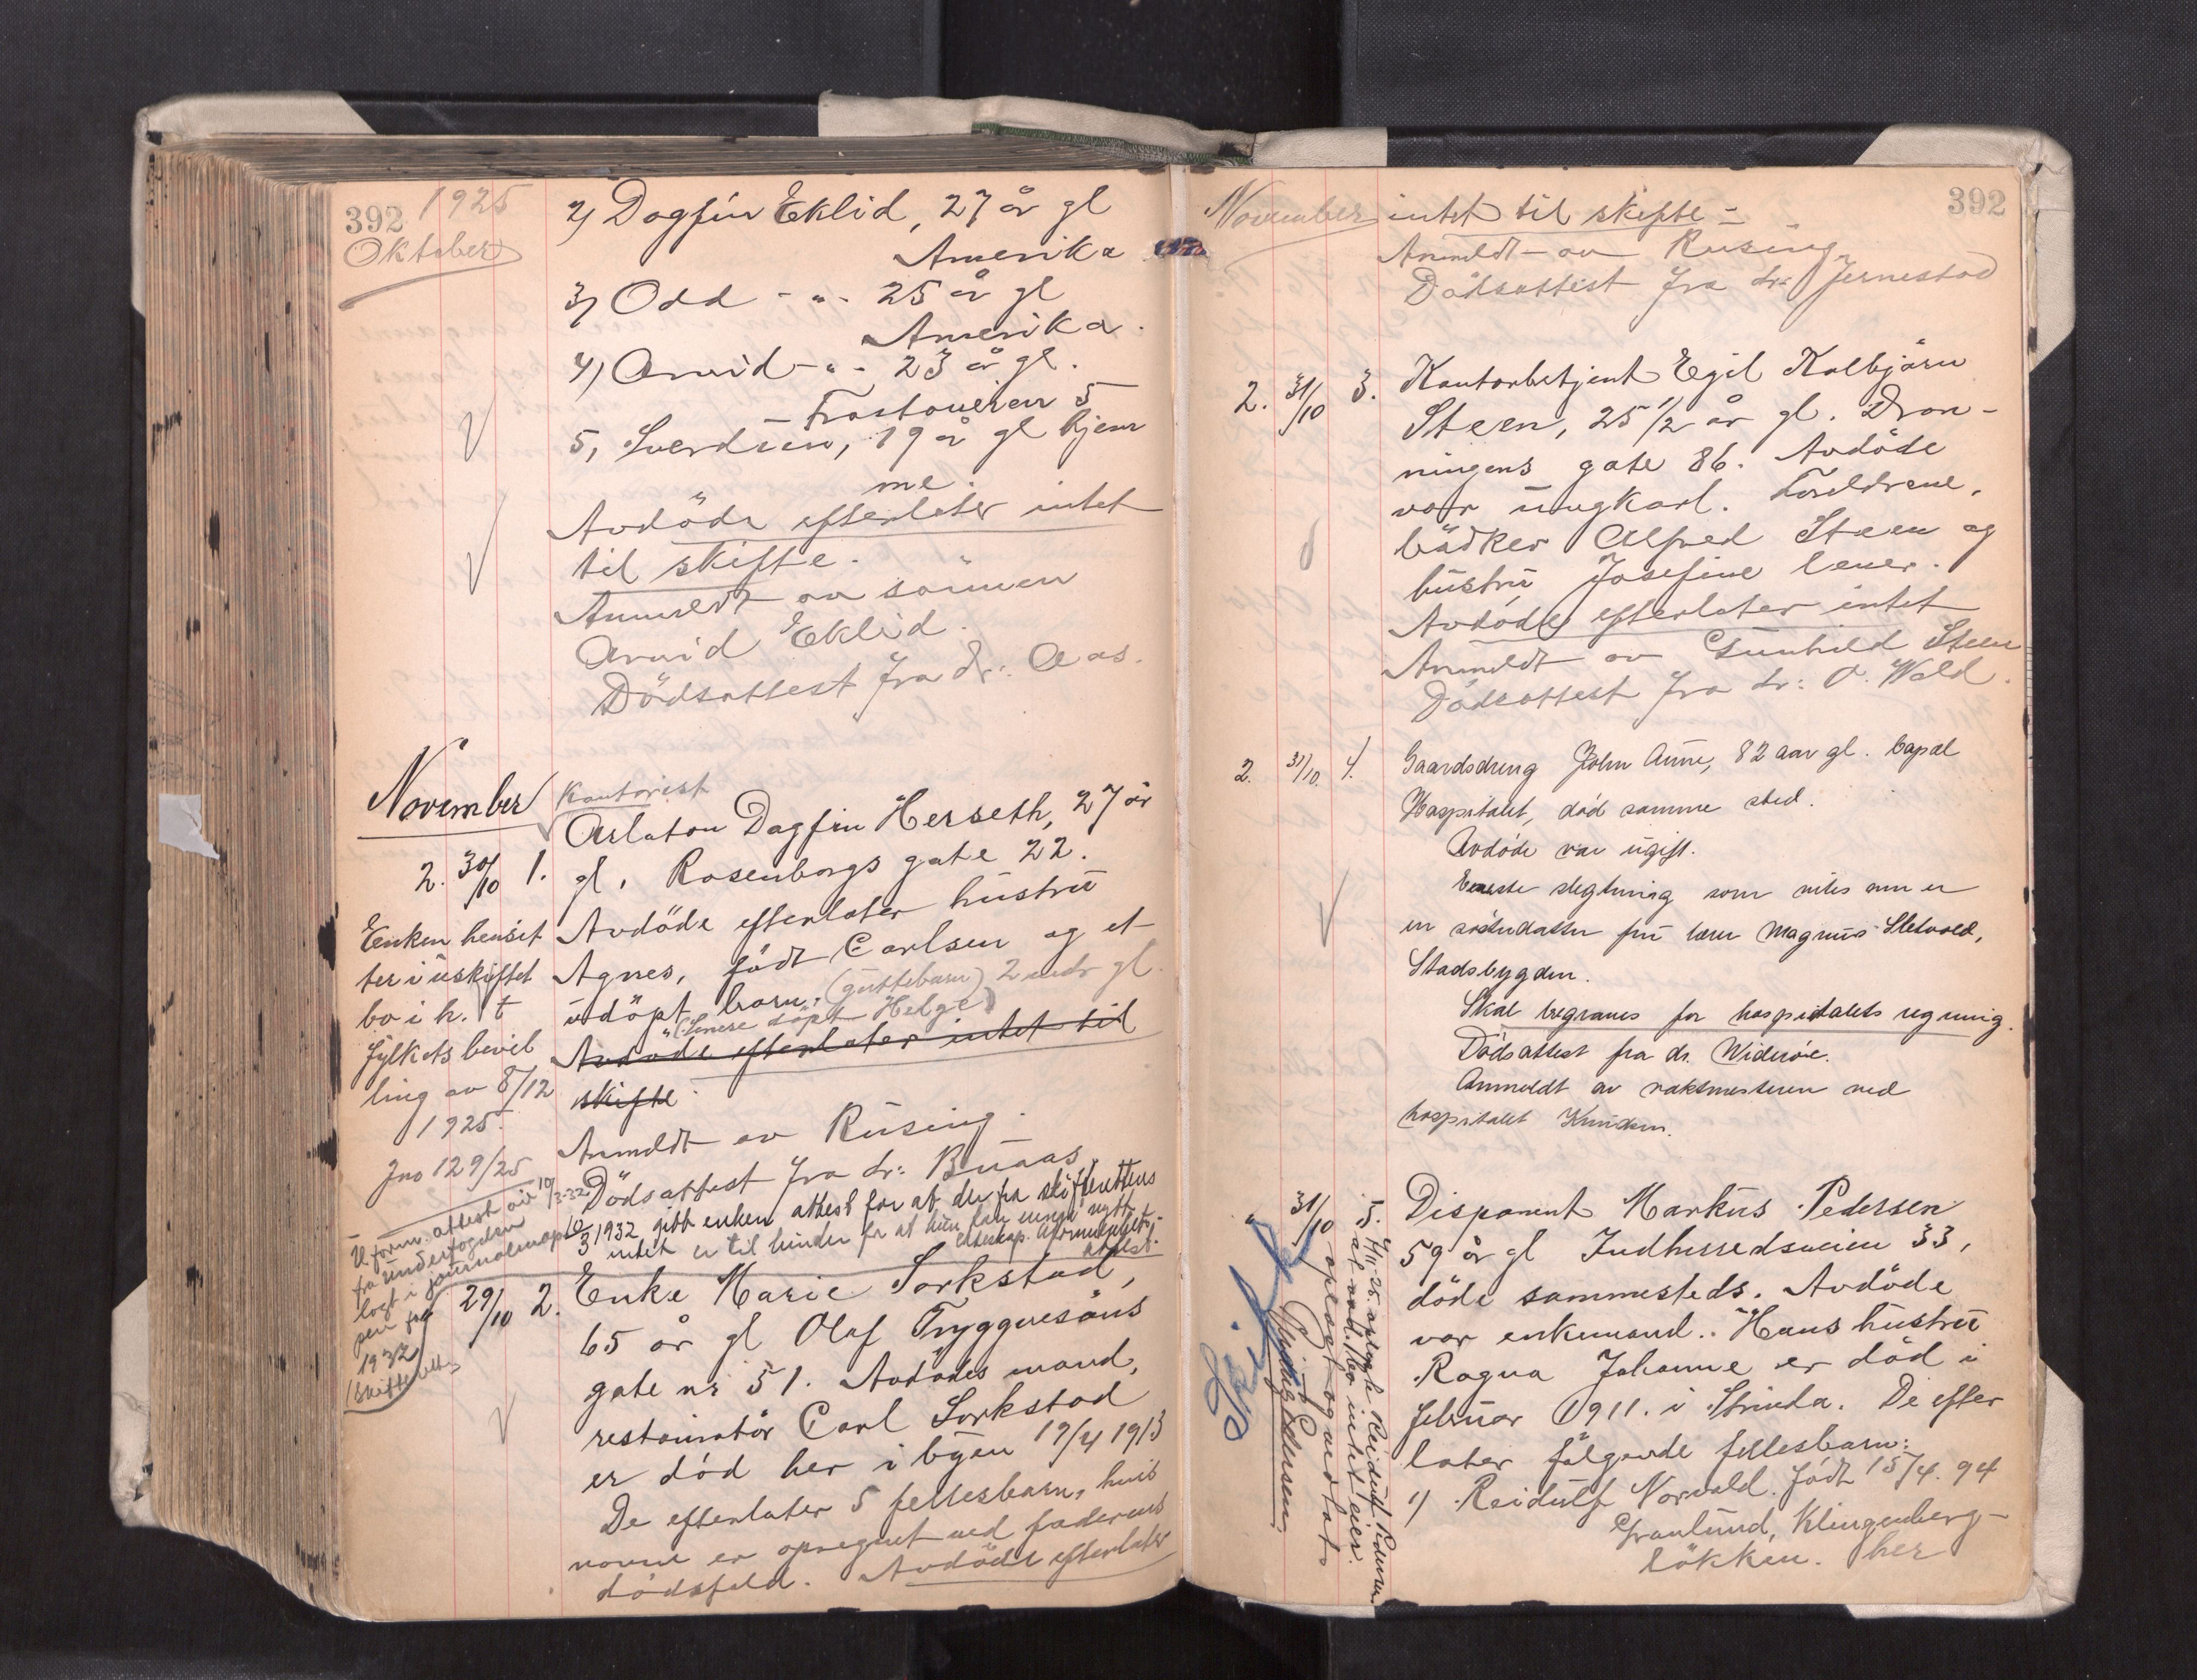 392 1925
Oktober
2) Dagfin Eklid, 27 år gl
Amerika
3) Odd - " - 25 år gl
Amerika.
4) Arvid - " - 23 år gl.
Frostaveien 5
5, Sverdrun, 19 år gl hjem
me.
Avdöde efterlater intet
til skifte.
Anmeldt av sönnen
Arvid Eklid.
Dödsattest fra dr: Aas.
November
Kontorist
2. 30/10 1. Arlaton Dagfin Herseth, 27 år
gl, Rosenborgs gate 22.
Avdöde efterlater hustru
Agnes, födt Carlsen og et
udöpt barn. (guttebarn) 2 mdr gl.
"(Senere döpt Helge)
Avdöde efterlater intet til
skifte.
Anmeldt av Rüsing.
Dödsattest fra dr: Buaas.
10/3 1932 gitt enken attest for at der fra skifterettens
intet er til hinder for at hun kan inngå nytt
ekteskap.
Enken hensit
ter i uskiftet
bo i h. t
fylkets bevil
ling av 8/12
1925.
Jno 129/25
U. form. attest av 10/3-32
fra underfogden
lagt i journalomap
pen for
1932
29/10 2. Enke Marie Sorkstad,
65 år gl Olaf Tryggvesöns
gate nr 51. Avdödes mand,
restauratör Carl Sorkstad
er död her i byen 19/4 1913
De efterlater 5 fellesbarn, hvis
navne er opregnet ved faderens
dödsfald. Avdöde efterlater
November 392
intet til skifte -
Anmeldt av Rüsing
Dödsattest fra dr: Jernestad
2. 31/10 3. Kontorbetjent Egil Kolbjörn
Steen, 25 1/2 år gl. Dron-
ningens gate 86. Avdöde
var ungkarl. Foreldrene,
bödker Alfred Steen og
hustru Josefine lever.
Avdöde efterlater intet
Anmeldt av Gunhild Steen
Dödsattest fra dr: O. Wold.
2. 31/10. 4. Gaardsdreng John Aune, 82 aar gl. Capal
Hospitalet, död samme sted.
Avdöde var ugift.
Eneste slegtning som vites om er
en sösterdatter fru lærer Magnus Sletvold,
Stadsbygden.
Skal begraves for hospitalets regning.
Dödsattest fra dr. Wideröe.
Anmeldt av vaktmesteren ved
hospitalet Knudsen.
" 31/10 5. Disponent Markus Pedersen
59 år gl Indherredsveien 33,
döde sammesteds. Avdöde
var enkemand. Hans hustru
Ragna Johanne er död i
februar 1911. i Strinda. De efter
later fölgende fellesbarn:
1) Reidulf Norvald. födt 15/4. 94
Granlund, Klingenberg-
lökken. her
4/11-25 oplagt Reidulf Pedersen
at avd. bo intet eier.
oplagt og vedtatt